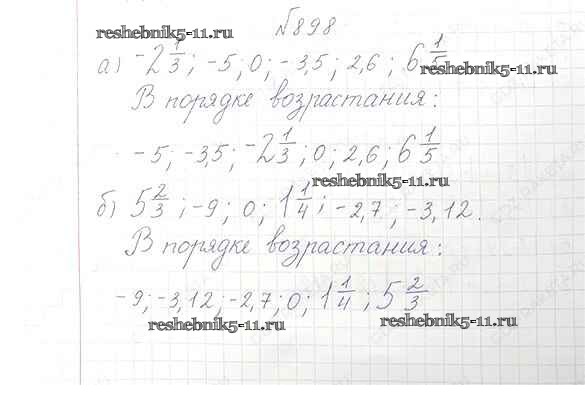 №898
reshebnik5-11.ru
а) -2 1/3; -5; 0; -3,5; 2,6; 6 1/5
reshebnik5-11.ru
В порядке возрастания:
-5; -3,5; -2 1/3; 0; 2,6; 6 1/5
reshebnik5-11.ru
б) 5 2/3; -9; 0; 1 1/4; -2,7; -3,12.
В порядке возрастания:
-9; -3,12; -2,7; 0; 1 1/4; 5 2/3
reshebnik5-11.ru
reshebnik5-11.ru